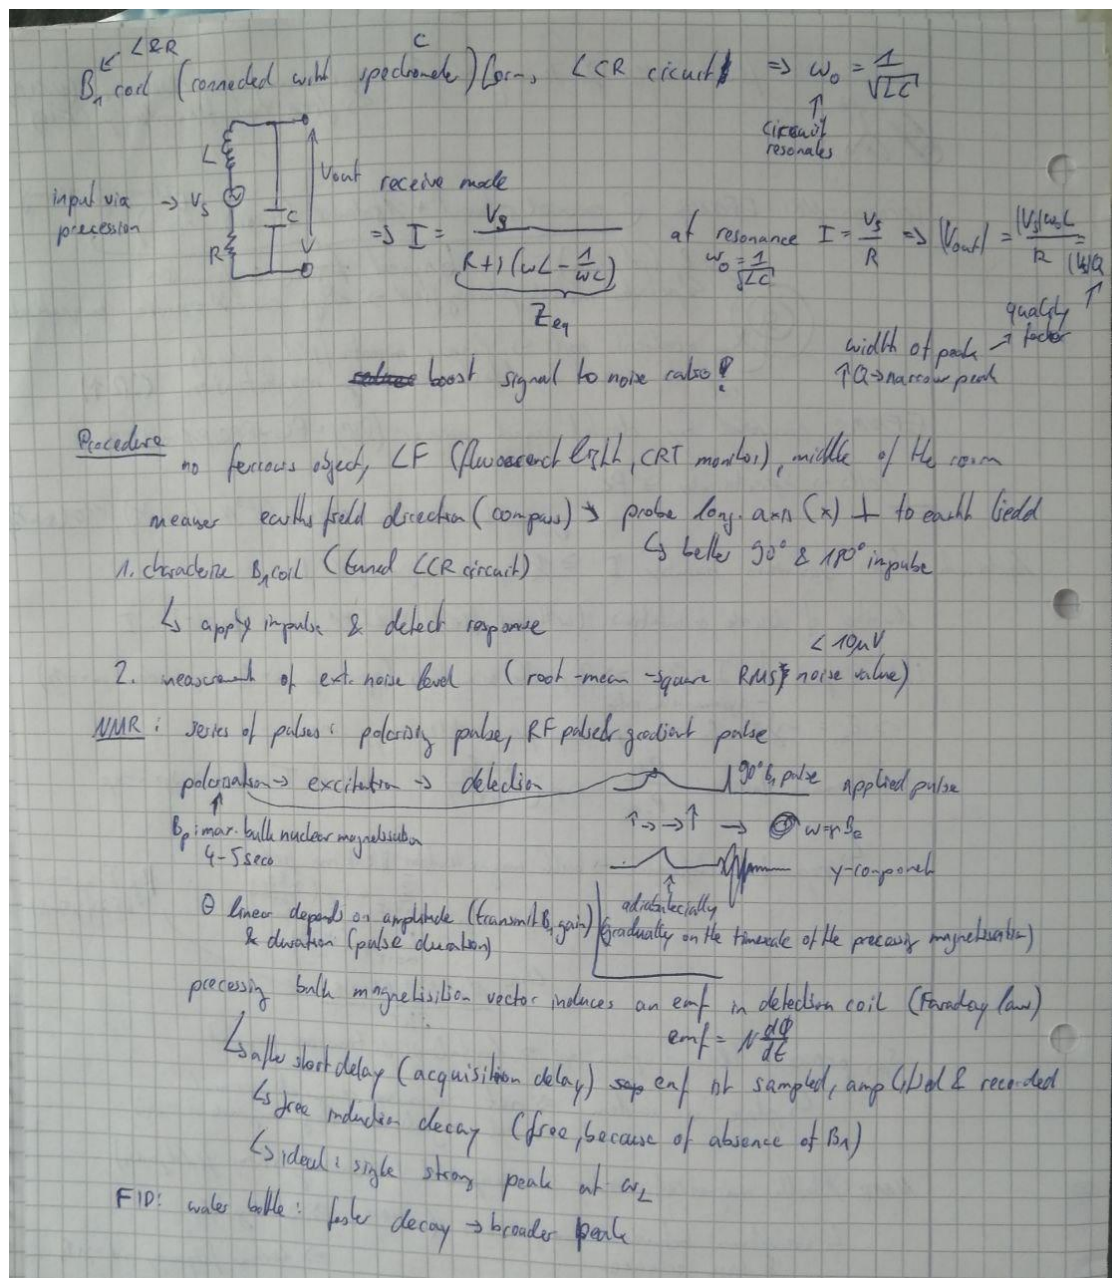 L&R
C
B₁ coil (connected with spectrometer) form LCR circuit => ω₀ = 1/√LC
circuit resonates
L
input via precession -> Vs
R
C
Vout receive mode
=> I = Vs / (R + j(ωL - 1/ωC))
Zeq
at resonance I = Vs/R => |Vout| = |Vs|ω₀L/R = |Vs|Q
ω₀ = 1/√LC
quality factor
width of peak
↑Q -> narrow peak
boost signal to noise ratio!
Procedure
no ferrous object, LF (fluorescent light, CRT monitor), middle of the room
measure earths field direction (compass) -> probe long. axis (x) ⊥ to earth field
↳ better 90° & 180° impulse
1. characterize B₁ coil (tuned LCR circuit)
↳ apply impulse & detect response
< 10μV
2. measurement of ext. noise level (root-mean-square RMS noise value)
NMR: series of pulses: polarising pulse, RF pulse & gradient pulse
polarisation -> excitation -> detection
90° B₁ pulse applied pulse
Bp: max. bulk nuclear magnetisation
4-5 seco
ω=γBe
y-component
adiabatically
(gradually on the timescale of the precessing magnetisation)
θ linear depends on amplitude (transmit B₁ gain)
& duration (pulse duration)
precessing bulk magnetisition vector induces an emf in detection coil (Faraday law)
emf = N dΦ/dt
↳ after short delay (acquisition delay) emf is sampled, amplified & recorded
↳ free induction decay (free, because of absence of B₁)
↳ ideal: single strong peak at ω_L
FID: water bottle: faster decay -> broader peak